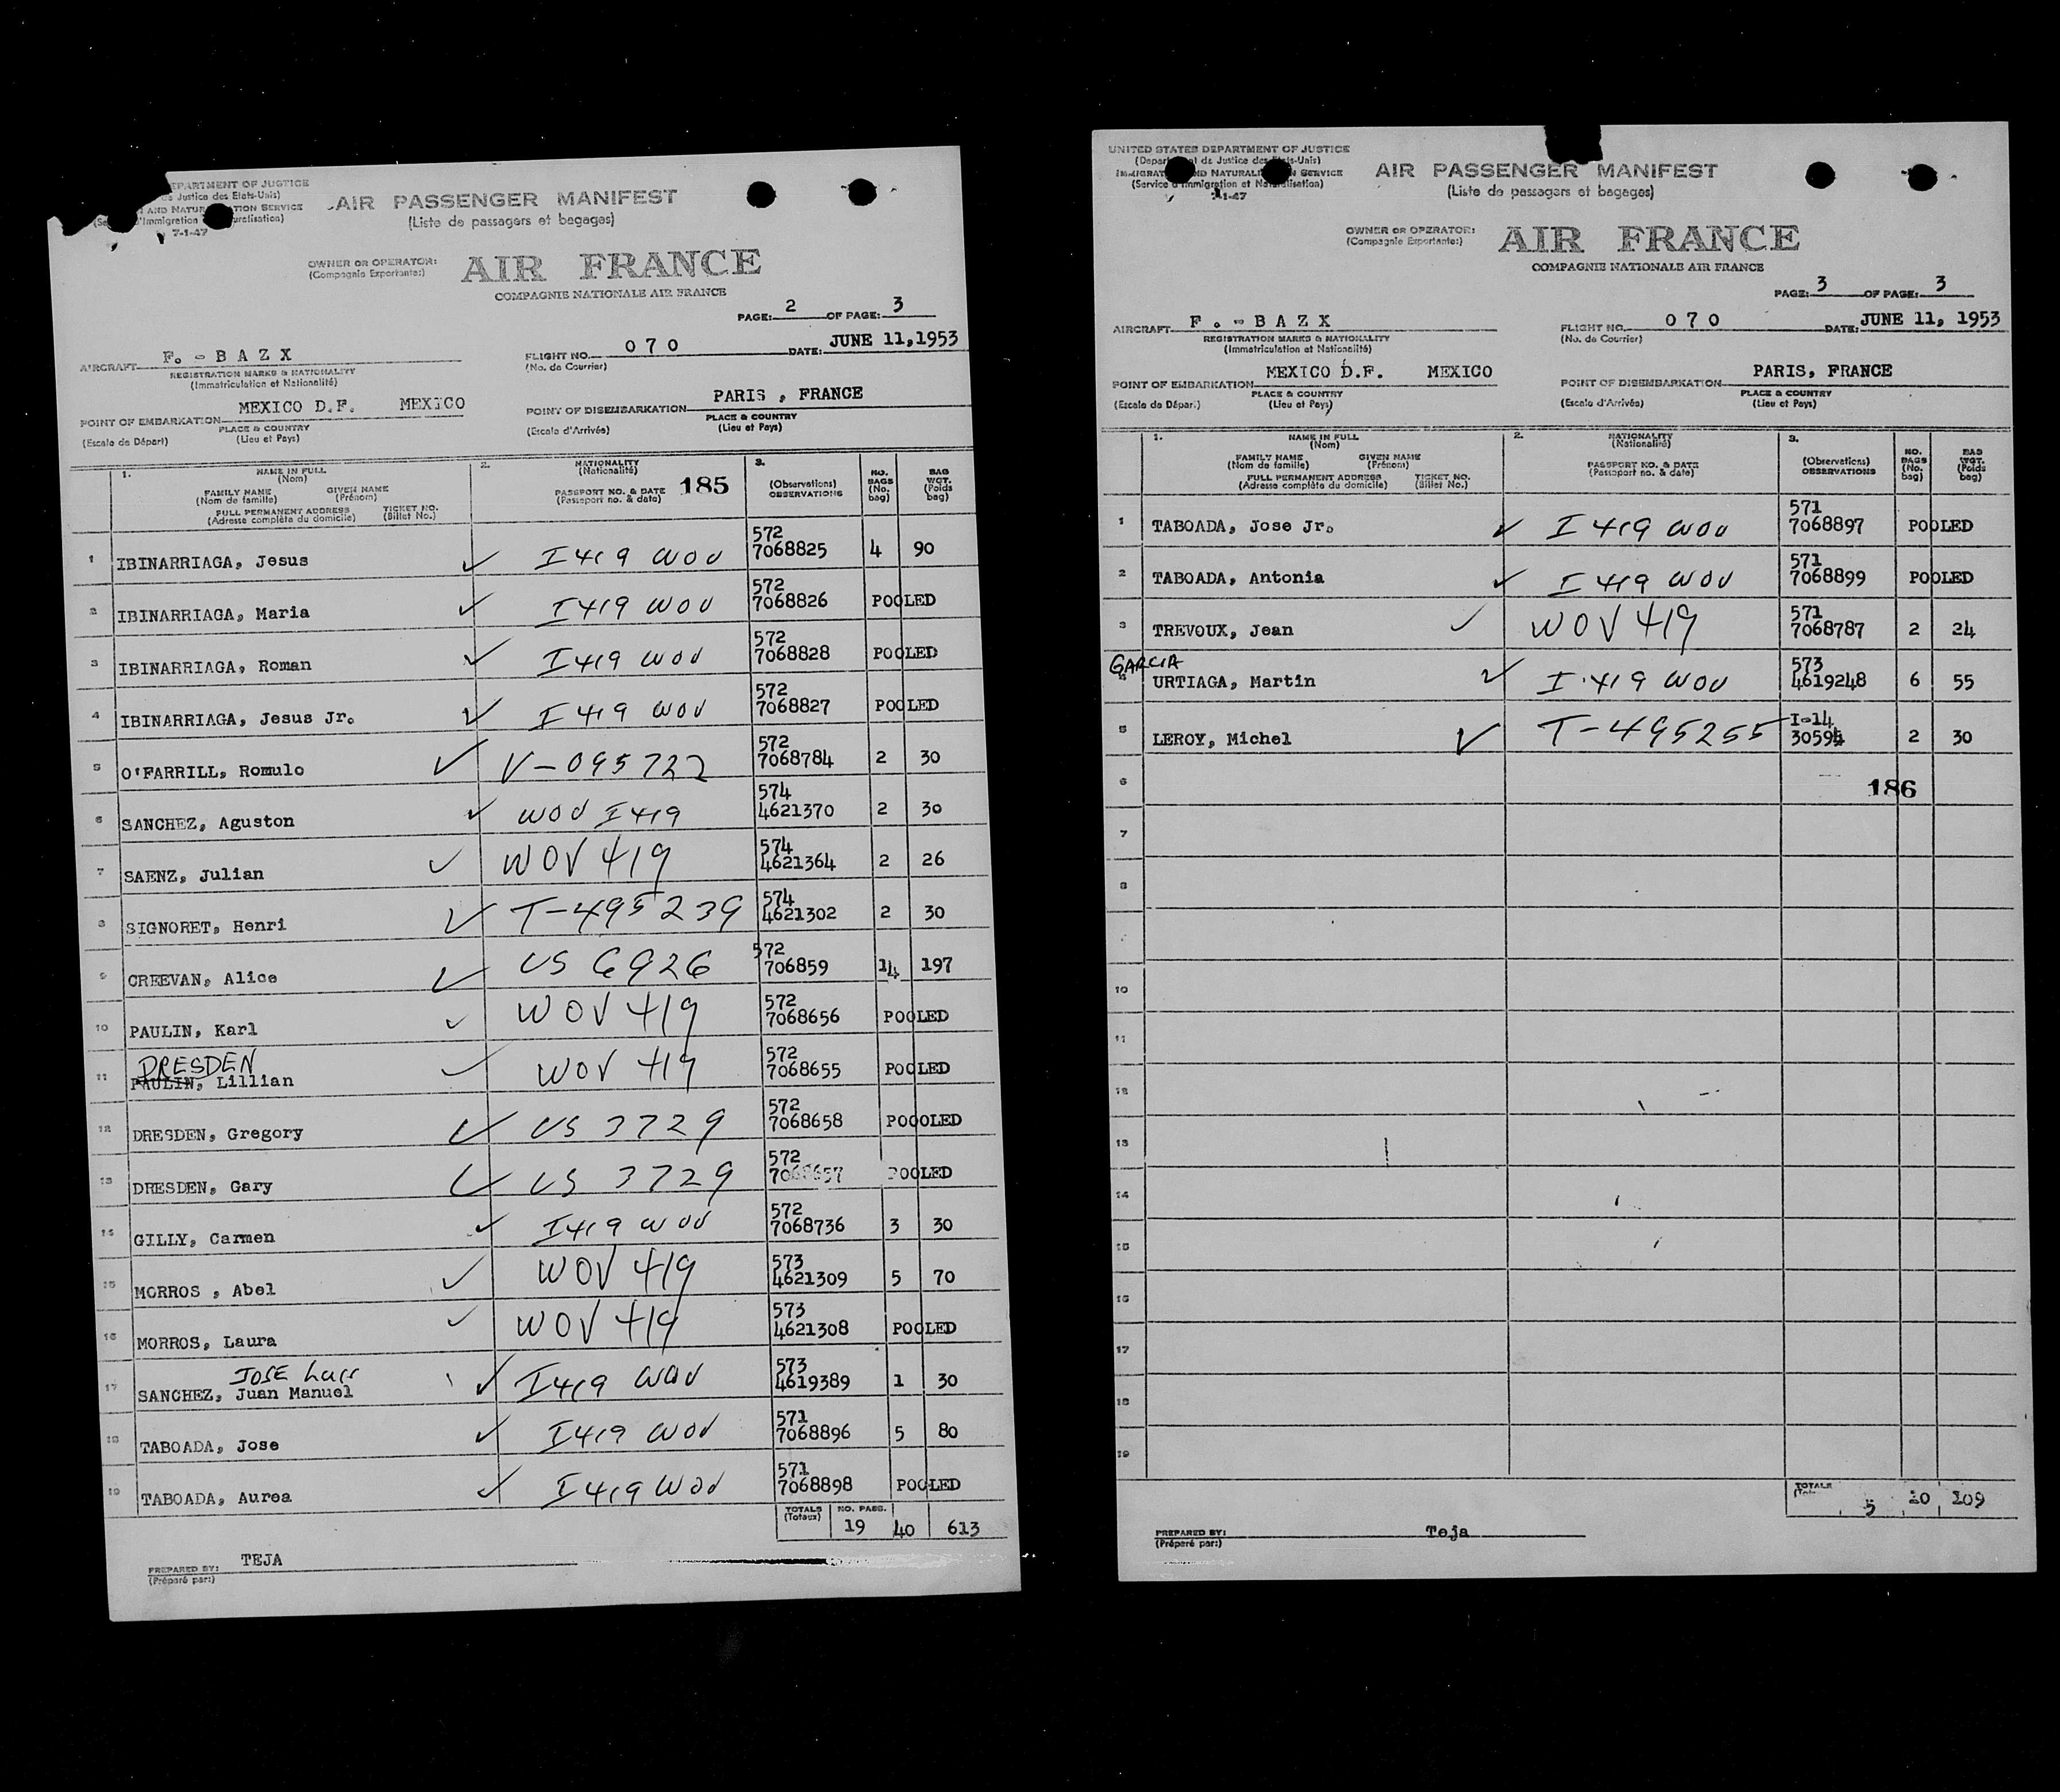 EPARTMENT OF JUSTICE
Justice des Etats-Unis)
AND NATUR TION SERVICE
'Immigration uralisation)
7-1-47
AIR PASSENGER MANIFEST
(Liste de passagers et bagages)
OWNER OR OPERATOR:
(Compagnie Exportante:)
AIR FRANCE
COMPAGNIE NATIONALE AIR FRANCE
PAGE: 2 OF PAGE: 3
AIRCRAFT F. - B A Z X
REGISTRATION MARKS & NATIONALITY
(Immatriculation et Nationalité)
FLIGHT NO. 0 7 0 DATE: JUNE 11,1953
(No. de Courrier)
POINT OF EMBARKATION MEXICO D.F. MEXICO
PLACE & COUNTRY
(Escale de Départ) (Lieu et Pays)
POINT OF DISEMBARKATION PARIS , FRANCE
PLACE & COUNTRY
(Escale d'Arrivée) (Lieu et Pays)
1. NAME IN FULL
(Nom)
FAMILY NAME GIVEN NAME
(Nom de famille) (Prénom)
FULL PERMANENT ADDRESS TICKET NO.
(Adresse complète du domicile) (Billet No.)
2. NATIONALITY
(Nationalité)
PASSPORT NO. & DATE 185
(Passeport no. & date)
3.
(Observations)
OBSERVATIONS
NO. BAGS (No. bag)
BAG WGT. (Poids bag)
1 IBINARRIAGA, Jesus ✓ I 419 WOV 572 7068825 4 90
2 IBINARRIAGA, Maria ✓ I 419 WOV 572 7068826 POOLED
3 IBINARRIAGA, Roman ✓ I 419 WOV 572 7068828 POOLED
4 IBINARRIAGA, Jesus Jr. ✓ I 419 WOV 572 7068827 POOLED
5 O'FARRILL, Romulo ✓ V-095722 572 7068784 2 30
6 SANCHEZ, Aguston ✓ WOV I 419 574 4621370 2 30
7 SAENZ, Julian ✓ WOV 419 574 4621364 2 26
8 SIGNORET, Henri ✓ T-495239 574 4621302 2 30
9 CREEVAN, Alice ✓ US 6926 572 706859 14 197
10 PAULIN, Karl ✓ WOV 419 572 7068656 POOLED
DRESDEN
11 PAULIN, Lillian ✓ WOV 419 572 7068655 POOLED
12 DRESDEN, Gregory ✓ US 3729 572 7068658 POOOLED
13 DRESDEN, Gary ✓ US 3729 572 7068657 POOLED
14 GILLY, Carmen ✓ I 419 WOV 572 7068736 3 30
15 MORROS , Abel ✓ WOV 419 573 4621309 5 70
16 MORROS, Laura ✓ WOV 419 573 4621308 POOLED
JOSE Luis
17 SANCHEZ, Juan Manuel ✓ I 419 WOV 573 4619389 1 30
18 TABOADA, Jose ✓ I 419 WOV 571 7068896 5 80
19 TABOADA, Aurea ✓ I 419 WOV 571 7068898 POOLED
TOTALS (Totaux) NO. PASS. 19 40 613
PREPARED BY: TEJA
(Préparé par:)
UNITED STATES DEPARTMENT OF JUSTICE
(Depar de Justice des Etats-Unis)
IMMIGRAT ND NATURALI N SERVICE
(Service d'Immigration et Naturalisation)
7-1-47
AIR PASSENGER MANIFEST
(Liste de passagers et bagages)
OWNER OR OPERATOR:
(Compagnie Exportante:)
AIR FRANCE
COMPAGNIE NATIONALE AIR FRANCE
PAGE: 3 OF PAGE: 3
AIRCRAFT F. - B A Z X
REGISTRATION MARKS & NATIONALITY
(Immatriculation et Nationalité)
FLIGHT NO. 0 7 0 DATE: JUNE 11, 1953
(No. de Courrier)
POINT OF EMBARKATION MEXICO D.F. MEXICO
PLACE & COUNTRY
(Escale de Départ) (Lieu et Pays)
POINT OF DISEMBARKATION PARIS, FRANCE
PLACE & COUNTRY
(Escale d'Arrivée) (Lieu et Pays)
1. NAME IN FULL
(Nom)
FAMILY NAME GIVEN NAME
(Nom de famille) (Prénom)
FULL PERMANENT ADDRESS TICKET NO.
(Adresse complète du domicile) (Billet No.)
2. NATIONALITY
(Nationalité)
PASSPORT NO. & DATE
(Passeport no. & date)
3.
(Observations)
OBSERVATIONS
NO. BAGS (No. bag)
BAG WGT. (Poids bag)
1 TABOADA, Jose Jr. ✓ I 419 WOV 571 7068897 POOLED
2 TABOADA, Antonia ✓ I 419 WOV 571 7068899 POOLED
3 TREVOUX, Jean ✓ WOV 419 571 7068787 2 24
GARCIA
4 URTIAGA, Martin ✓ I 419 WOV 573 4619248 6 55
5 LEROY, Michel ✓ T-495255 I-14 30594 2 30
6 186
7
8
10
11
12
13
14
15
16
17
18
19
TOTALS 5 10 109
PREPARED BY: Teja
(Préparé par:)